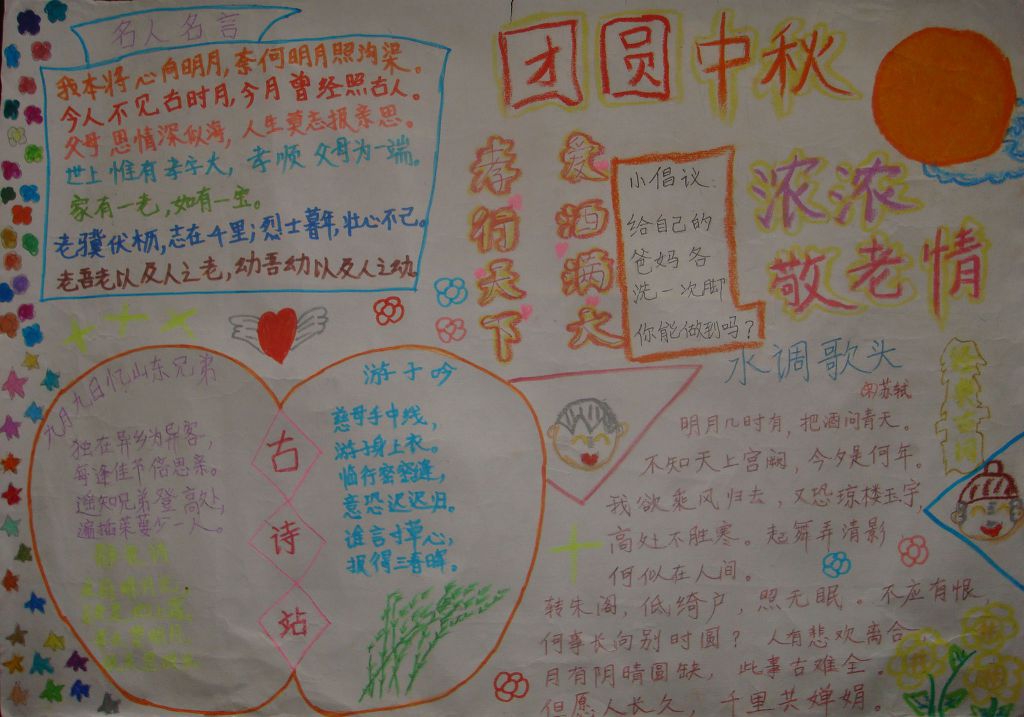 名人名言
我本将心向明月,奈何明月照沟渠。
今人不见古时月,今月曾经照古人。
父母恩情深似海,人生莫忘报亲恩。
世上惟有孝字大,孝顺父母为一端。
家有一老,如有一宝。
老骥伏枥,志在千里;烈士暮年,壮心不已。
老吾老以及人之老,幼吾幼以及人之幼
团圆中秋
浓浓
敬老情
孝行天下
爱洒满大
小倡议:
给自己的
爸妈各
洗一次脚
你能做到吗?
九月九日忆山东兄弟
独在异乡为异客,
每逢佳节倍思亲。
遥知兄弟登高处,
遍插茱萸少一人。
古诗站
游子吟
慈母手中线,
游子身上衣。
临行密密缝,
意恐迟迟归。
谁言寸草心,
报得三春晖。
水调歌头
苏轼
明月几时有,把酒问青天。
不知天上宫阙,今夕是何年。
我欲乘风归去,又恐琼楼玉宇,
高处不胜寒。起舞弄清影
何似在人间。
转朱阁,低绮户,照无眠。不应有恨
何事长向别时圆?人有悲欢离合,
月有阴晴圆缺,此事古难全。
但愿人长久,千里共婵娟。